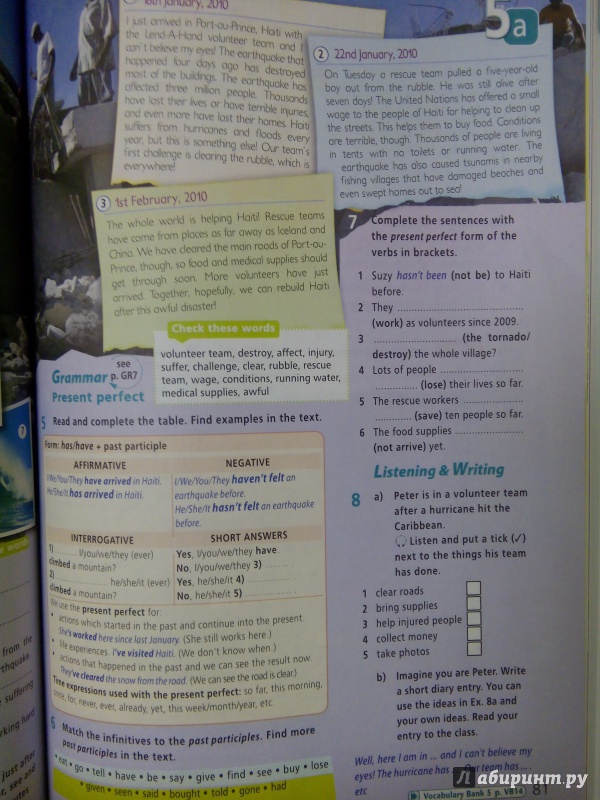 18th January, 2010
I just arrived in Port-au-Prince, Haiti with
the Lend-A-Hand volunteer team and I
can't believe my eyes! The earthquake that
happened four days ago has destroyed
most of the buildings. The earthquake has
affected three million people. Thousands
have lost their lives or have terrible injuries,
and even more have lost their homes. Haiti
suffers from hurricanes and floods every
year, but this is something else! Our team's
first challenge is clearing the rubble, which is
everywhere!
5a
2 22nd January, 2010
On Tuesday a rescue team pulled a five-year-old
boy out from the rubble. He was still alive after
seven days! The United Nations has offered a small
wage to the people of Haiti for helping to clean up
the streets. This helps them to buy food. Conditions
are terrible, though. Thousands of people are living
in tents with no toilets or running water. The
earthquake has also caused tsunamis in nearby
fishing villages that have damaged beaches and
even swept homes out to sea!
3 1st February, 2010
The whole world is helping Haiti! Rescue teams
have come from places as far away as Iceland and
China. We have cleared the main roads of Port-au-
Prince, though, so food and medical supplies should
get through soon. More volunteers have just
arrived. Together, hopefully, we can rebuild Haiti
after this awful disaster!
Check these words
volunteer team, destroy, affect, injury,
suffer, challenge, clear, rubble, rescue
team, wage, conditions, running water,
medical supplies, awful
Grammar see p. GR7
Present perfect
5 Read and complete the table. Find examples in the text.
Form: has/have + past participle
AFFIRMATIVE
I/We/You/They have arrived in Haiti.
He/She/It has arrived in Haiti.
NEGATIVE
I/We/You/They haven't felt an
earthquake before.
He/She/It hasn't felt an earthquake
before.
INTERROGATIVE
1) ........ I/you/we/they (ever)
climbed a mountain?
2) ........ he/she/it (ever)
climbed a mountain?
SHORT ANSWERS
Yes, I/you/we/they have
No, I/you/we/they 3) ........ .
Yes, he/she/it 4) ........ .
No, he/she/it 5) ........ .
We use the present perfect for:
• actions which started in the past and continue into the present.
She's worked here since last January. (She still works here.)
• life experiences. I've visited Haiti. (We don't know when.)
• actions that happened in the past and we can see the result now.
They've cleared the snow from the road. (We can see the road is clear.)
Time expressions used with the present perfect: so far, this morning,
since, for, never, ever, already, yet, this week/month/year, etc
6 Match the infinitives to the past participles. Find more
past participles in the text.
• eat • go • tell • have • be • say • give • find • see • buy • lose
• given • seen • said • bought • told • gone • had
7 Complete the sentences with
the present perfect form of the
verbs in brackets.
1 Suzy hasn't been (not be) to Haiti
before.
2 They ................................
(work) as volunteers since 2009.
3 ........................ (the tornado/
destroy) the whole village?
4 Lots of people ........................
............ (lose) their lives so far.
5 The rescue workers ..................
............ (save) ten people so far.
6 The food supplies ....................
(not arrive) yet.
Listening & Writing
8 a) Peter is in a volunteer team
after a hurricane hit the
Caribbean.
Listen and put a tick (✓)
next to the things his team
has done.
1 clear roads
2 bring supplies
3 help injured people
4 collect money
5 take photos
b) Imagine you are Peter. Write
a short diary entry. You can
use the ideas in Ex. 8a and
your own ideas. Read your
entry to the class.
Well, here I am in ... and I can't believe my
eyes! The hurricane has ... Our team has ... .
etc
Vocabulary Bank 5 p. VB14 81
7
from the
suffering
just after
Лабиринт.ру